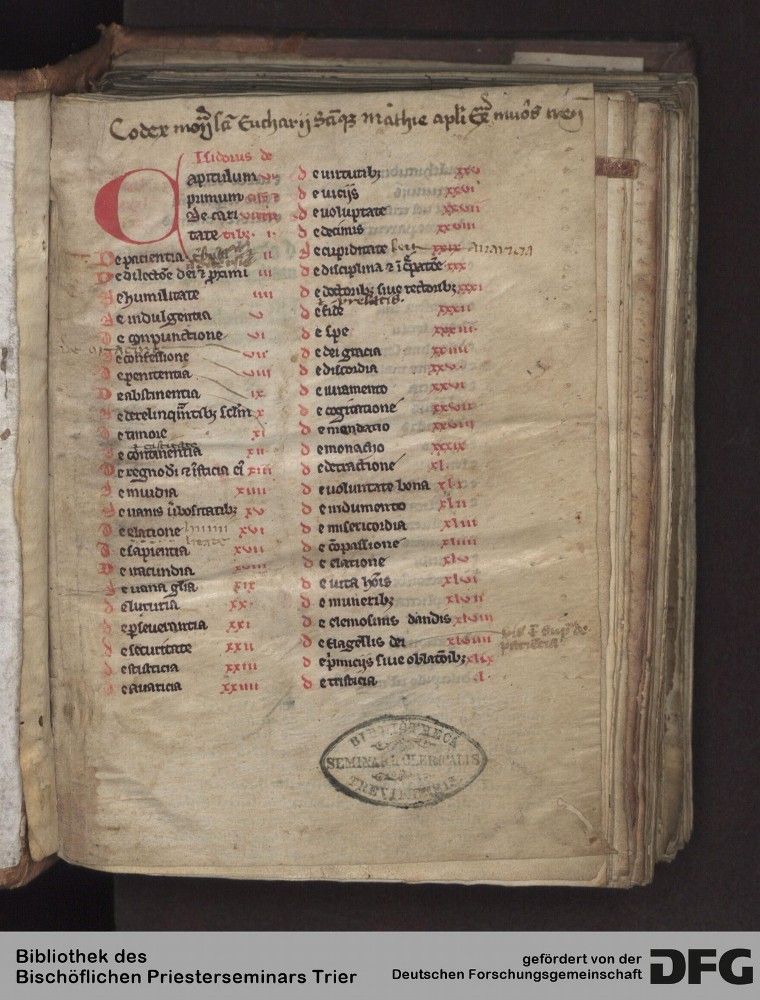 Codex mon sci Eucharii Scique mathie apli Ext muros treū
Isidorus de
Capitulum
primum
De cari
tate
De paciencia ii
De dilectōe dei ⁊ p̄ximi iii
De humilitate iiii
De indulgentia v
De conpunctione vi
De confessione vii
De penitentia viii
De abstinentia ix
De derelinquētibȝ sclm x
De timore xi
De continentia xii
De regno di ⁊ iusticia ei xiii
De inuidia xiiii
De uanis ūbositatibȝ xv
De elatione xvi
De sapientia xvii
De iracundia xviii
De uana glia xix
De luxuria xx
De perseuerantia xxi
De securitate xxii
De stulticia xxiii
De auaricia xxiiii
de uirtutibȝ xxv
de uiciis xxvi
de uoluptate xxvii
de decimis xxviii
de cupiditate seu xxix auaricia
de disciplina ⁊ xxx
de doctoribȝ siue rectoribȝ xxxi
⁊ prelatis.
de fide xxxii
de spe xxxiii
de dei gracia xxxiiii
de discordia xxxv
de iuramento xxxvi
de cogitatione xxxvii
de mendatio xxxviii
de monacho xxxix
de detractione xl
de uoluntate bona xli
de indumento xlii
de misericordia xliii
de cōpassione xliiii
de elatione xlv
de uita hōis xlvi
de muneribȝ xlvii
de elemosinis dandis xlviii
de flagellis dei xlviiii
de p̄miciis siue oblatōibȝ xlix
de tristicia l
BIBLIOTHECA
SEMINARII CLERICALIS
TREVIRENSIS
Bibliothek des
Bischöflichen Priesterseminars Trier
gefördert von der
Deutschen Forschungsgemeinschaft DFG